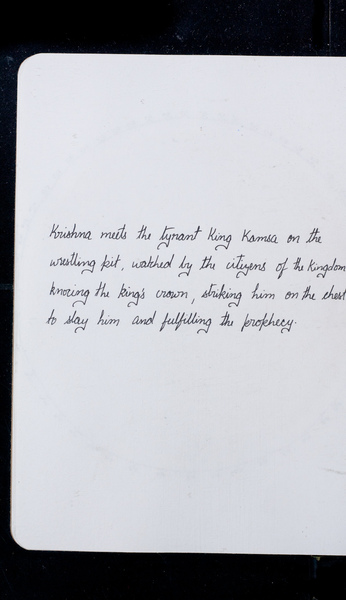 Krishna meets the tyrant King Kamsa on the
wrestling pit, watched by the citizens of the Kingdom
knocing the king's crown, striking him on the chest
to slay him and fulfilling the prophecy.